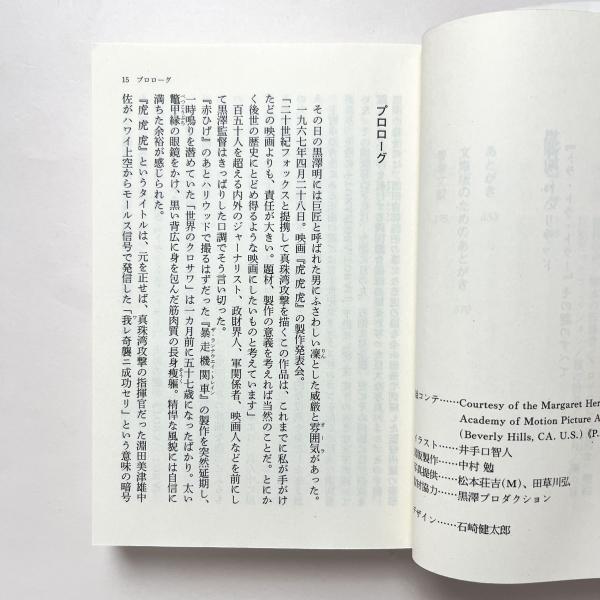 15 プロローグ
プロローグ
その日の黒澤明には巨匠と呼ばれた男にふさわしい凜とした威厳と雰囲気があった。
一九六七年四月二十八日。映画『虎 虎 虎』の製作発表会。
「二十世紀フォックスと提携して真珠湾攻撃を描くこの作品は、これまでに私が手がけ
たどの映画よりも、責任が大きい。題材、製作の意義を考えれば当然のことだ。とにか
く後世の歴史にとどめ得るような映画にしたいものと考えています」
百五十人を超える内外のジャーナリスト、政財界人、軍関係者、映画人などを前にし
て黒澤監督はきっぱりした口調でそう言い切った。
『赤ひげ』のあとハリウッドで撮るはずだった『暴走機関車』の製作を突然延期し、
一時鳴りを潜めていた「世界のクロサワ」は一カ月前に五十七歳になったばかり。太い
鼈甲縁の眼鏡をかけ、黒い背広に身を包んだ筋肉質の長身痩軀。精悍な風貌には自信に
満ちた余裕が感じられた。
『虎 虎 虎』というタイトルは、元を正せば、真珠湾攻撃の指揮官だった淵田美津雄中
佐がハワイ上空からモールス信号で発信した「我レ奇襲ニ成功セリ」という意味の暗号
コンテ……Courtesy of the Margaret Her
Academy of Motion Picture A
(Beverly Hills, CA. U.S.)《P.
イラスト……井手口智人
製作……中村 勉
提供……松本荘吉(M)、田草川弘
協力……黒澤プロダクション
デザイン……石崎健太郎